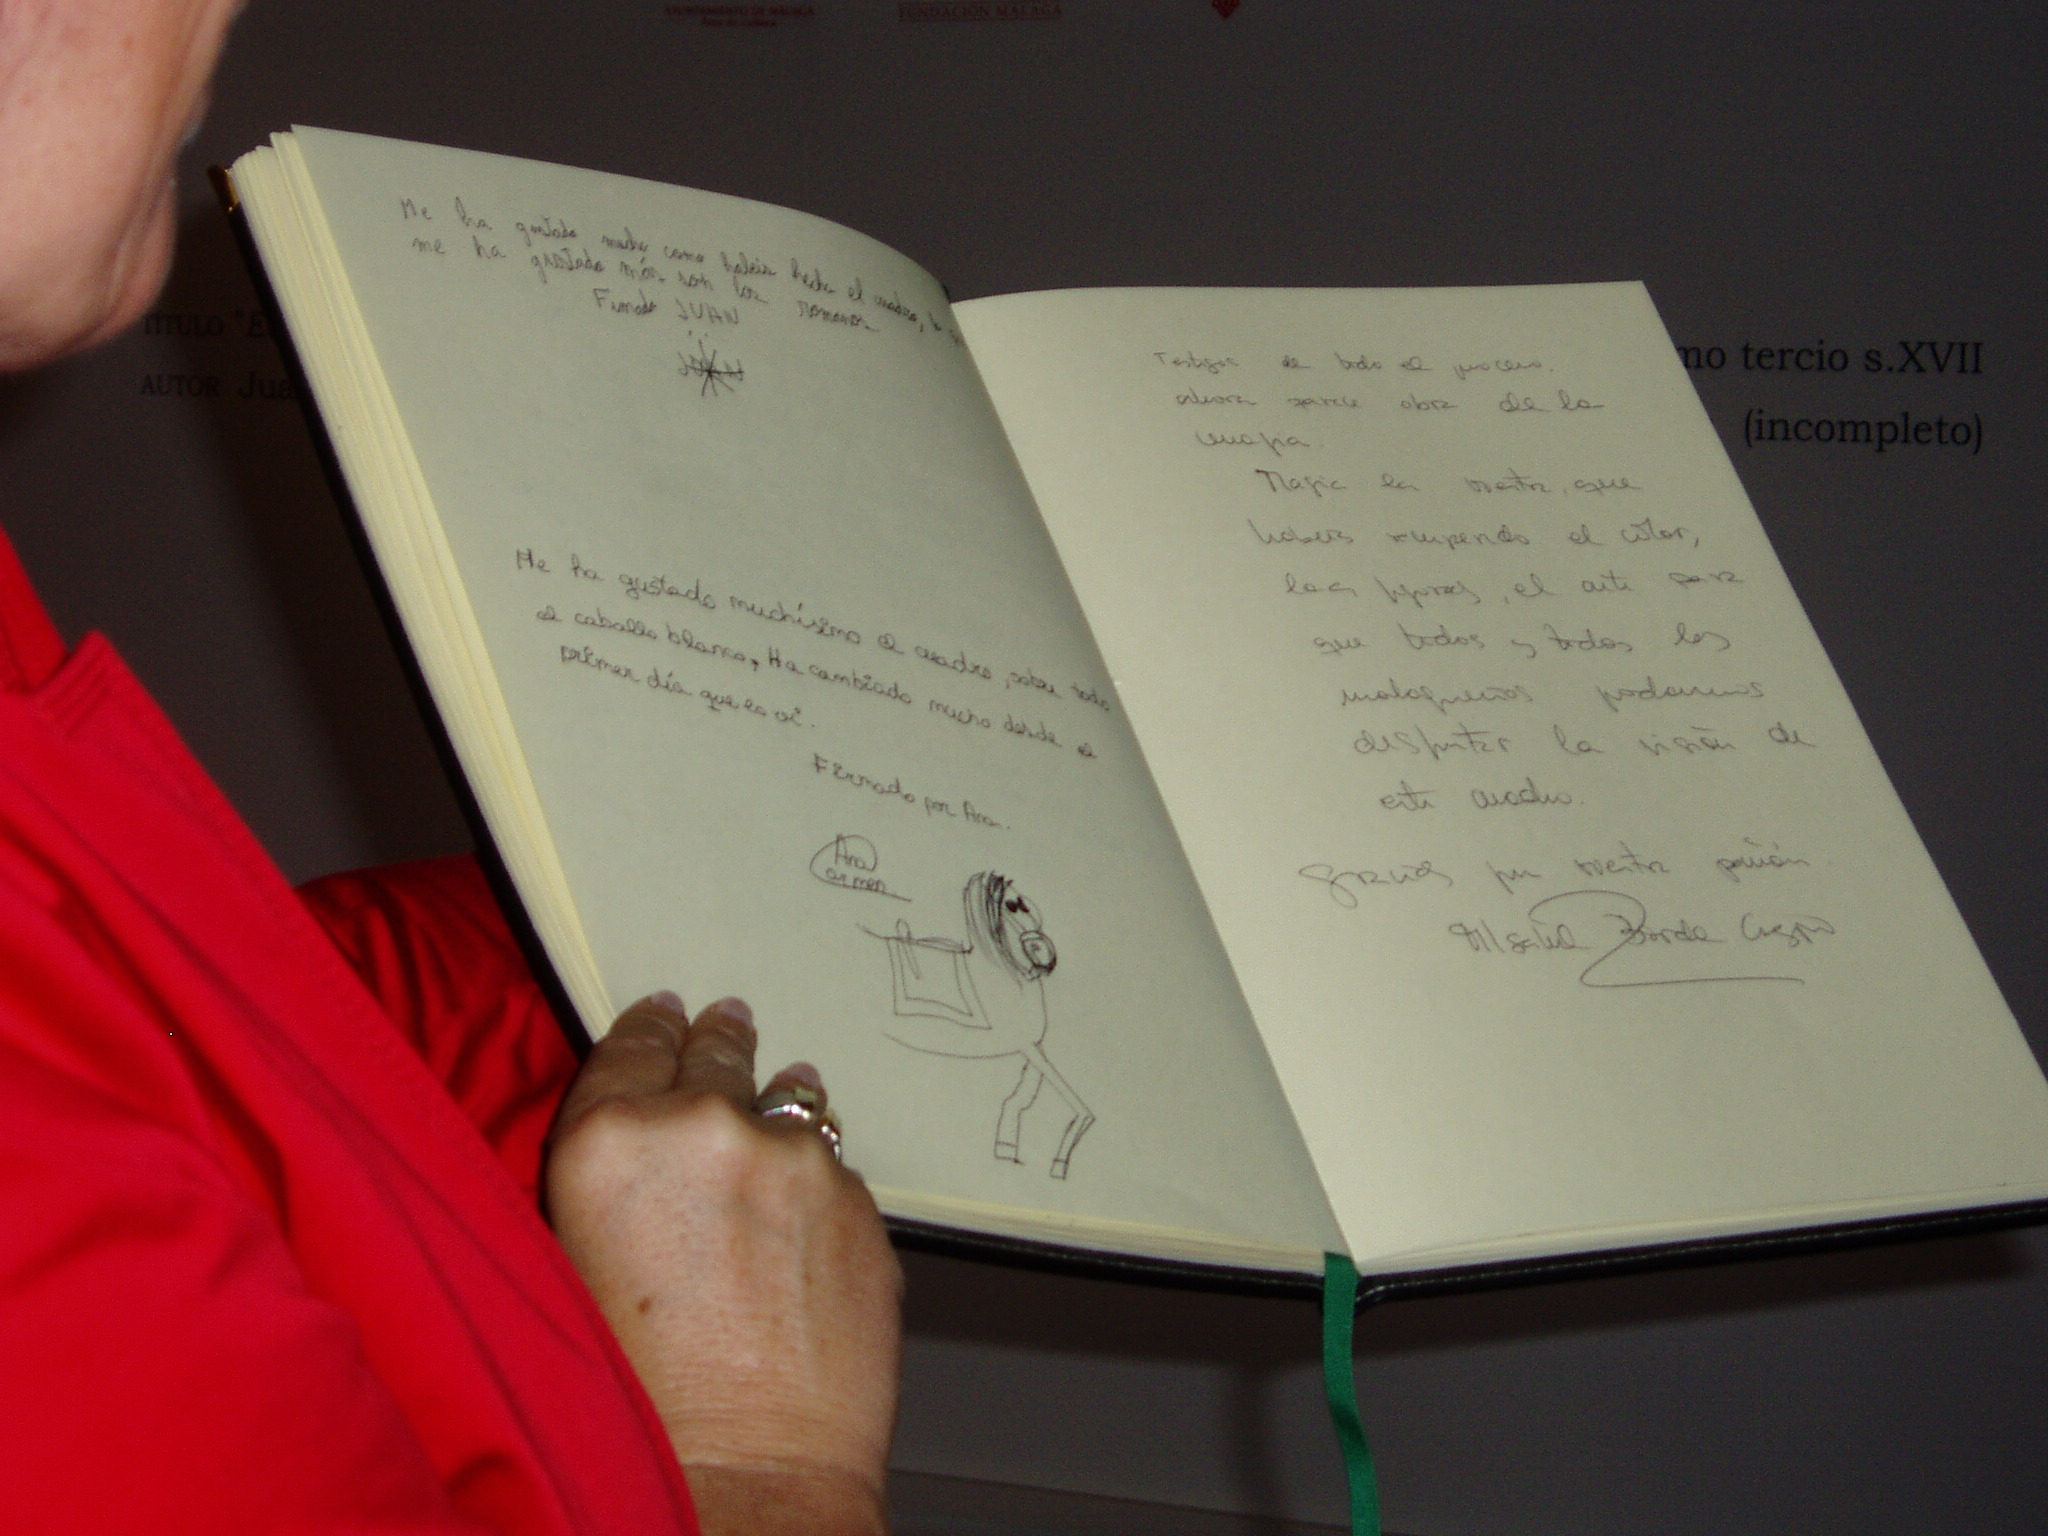 AYUNTAMIENTO DE MÁLAGA
FUNDACIÓN MÁLAGA
TÍTULO "E
AUTOR Jua
mo tercio s.XVII
(incompleto)
Me ha gustado mucho como habeis hecho el cuadro, lo
me ha gustado más son los romanos
Firmado JUAN
Me ha gustado muchísimo el cuadro, sobre todo
el caballo blanco, Ha cambiado mucho desde el
primer día que lo vi.
Firmado por Ana.
Ana
Carmen
Testigos de todo el proceso.
ahora parece obra de la
magia.
Magia la vuestra, que
habeis recuperado el color,
las figuras, el arte para
que todos y todas los
malagueños podamos
disfrutar la visión de
este cuadro.
Gracias por vuestra pasión.